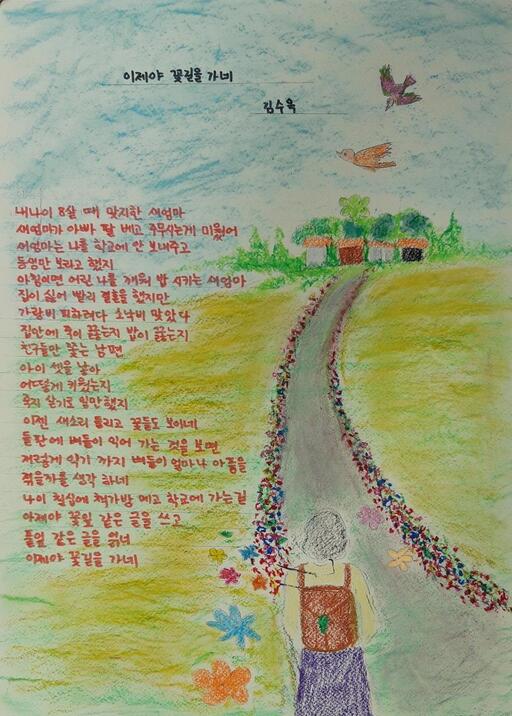 이제야 꽃길을 가네
김수옥
내나이 8살 때 맞지한 새엄마
새엄마가 아빠 팔 베고 주무시는게 미웠어
새엄마는 나를 학교에 안 보내주고
동생만 보라고 했지
아침이면 어린 나를 깨워 밥 시키는 새엄마
집이 싫어 빨리 결혼을 했지만
가랑비 피하려다 소낙비 맞았다
집안에 죽이 끓는지 밥이 끓는지
친구들만 쫓는 남편
아이 셋을 낳아
어떻게 키웠는지
죽지 살기로 일만했지
이젠 새소리 들리고 꽃들도 보이네
들판에 벼들이 익어 가는 것을 보면
저렇게 익기 까지 벼들이 얼마나 아픔을
겪을까를 생각 하네
나이 칠십에 책가방 메고 학교에 가는길
아제야 꽃잎 같은 글을 쓰고
풀잎 같은 글을 읽네
이제야 꽃길을 가네